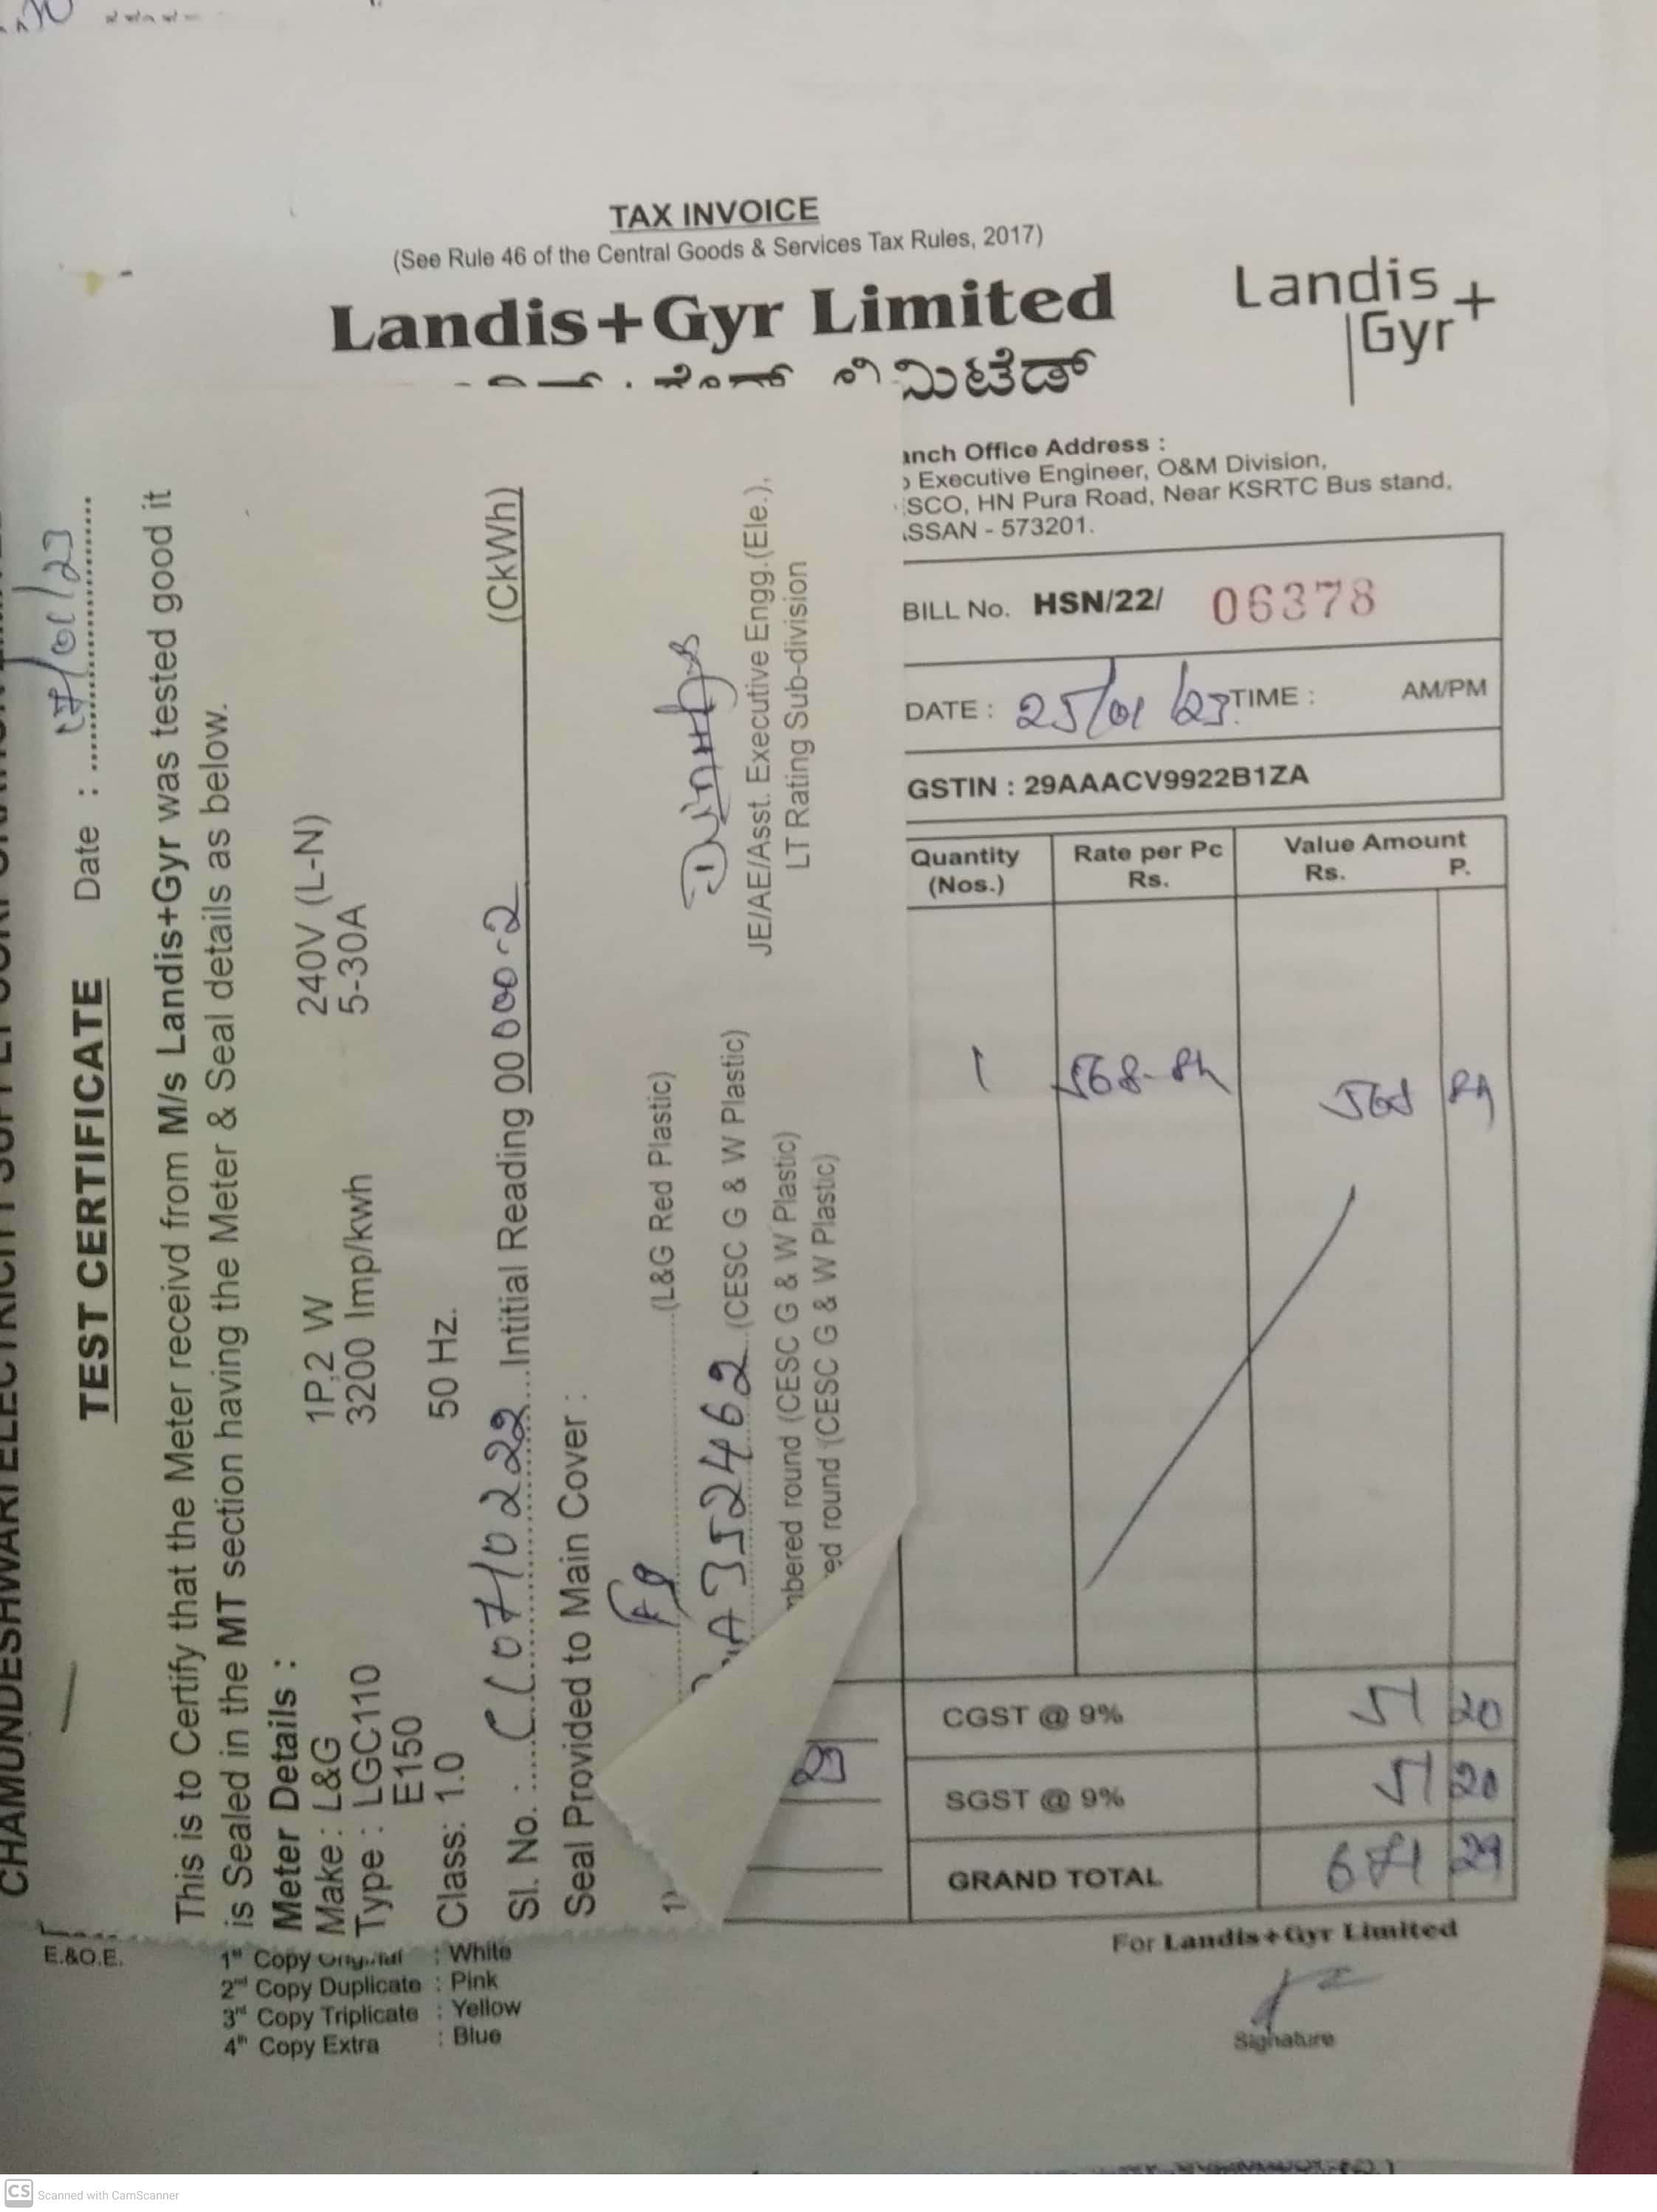 TAX INVOICE
(See Rule 46 of the Central Goods & Services Tax Rules, 2017)
Landis+Gyr Limited
Landis
Gyr+
ಲಿಮಿಟೆಡ್
anch Office Address :
Executive Engineer, O&M Division,
SCO, HN Pura Road, Near KSRTC Bus stand,
SSAN - 573201.
BILL No. HSN/22/ 06378
DATE : 25/01/23 TIME : AM/PM
GSTIN : 29AAACV9922B1ZA
Quantity (Nos.) Rate per Pc Rs. Value Amount Rs. P.
1 568-89 568 89
CGST @ 9% 51 20
SGST @ 9% 51 20
GRAND TOTAL 671 29
For Landis+Gyr Limited
Signature
E.&O.E.
1st Copy Original : White
2nd Copy Duplicate : Pink
3rd Copy Triplicate : Yellow
4th Copy Extra : Blue
CHAMUNDESHWARI ELECTRICITY SUPPLY CORPORATION
TEST CERTIFICATE Date : /01/23
This is to Certify that the Meter receivd from M/s Landis+Gyr was tested good it
is Sealed in the MT section having the Meter & Seal details as below.
Meter Details :
Make : L&G 1P.2 W 240V (L-N)
Type : LGC110 3200 Imp/kwh 5-30A
E150
Class: 1.0 50 Hz.
Sl. No. : CL071022 Intitial Reading 00000-2 (CkWh)
Seal Provided to Main Cover :
1) (L&G Red Plastic)
A352462 (CESC G & W Plastic)
mbered round (CESC G & W Plastic)
ed round (CESC G & W Plastic)
JE/AE/Asst. Executive Engg.(Ele.),
LT Rating Sub-division
Scanned with CamScanner